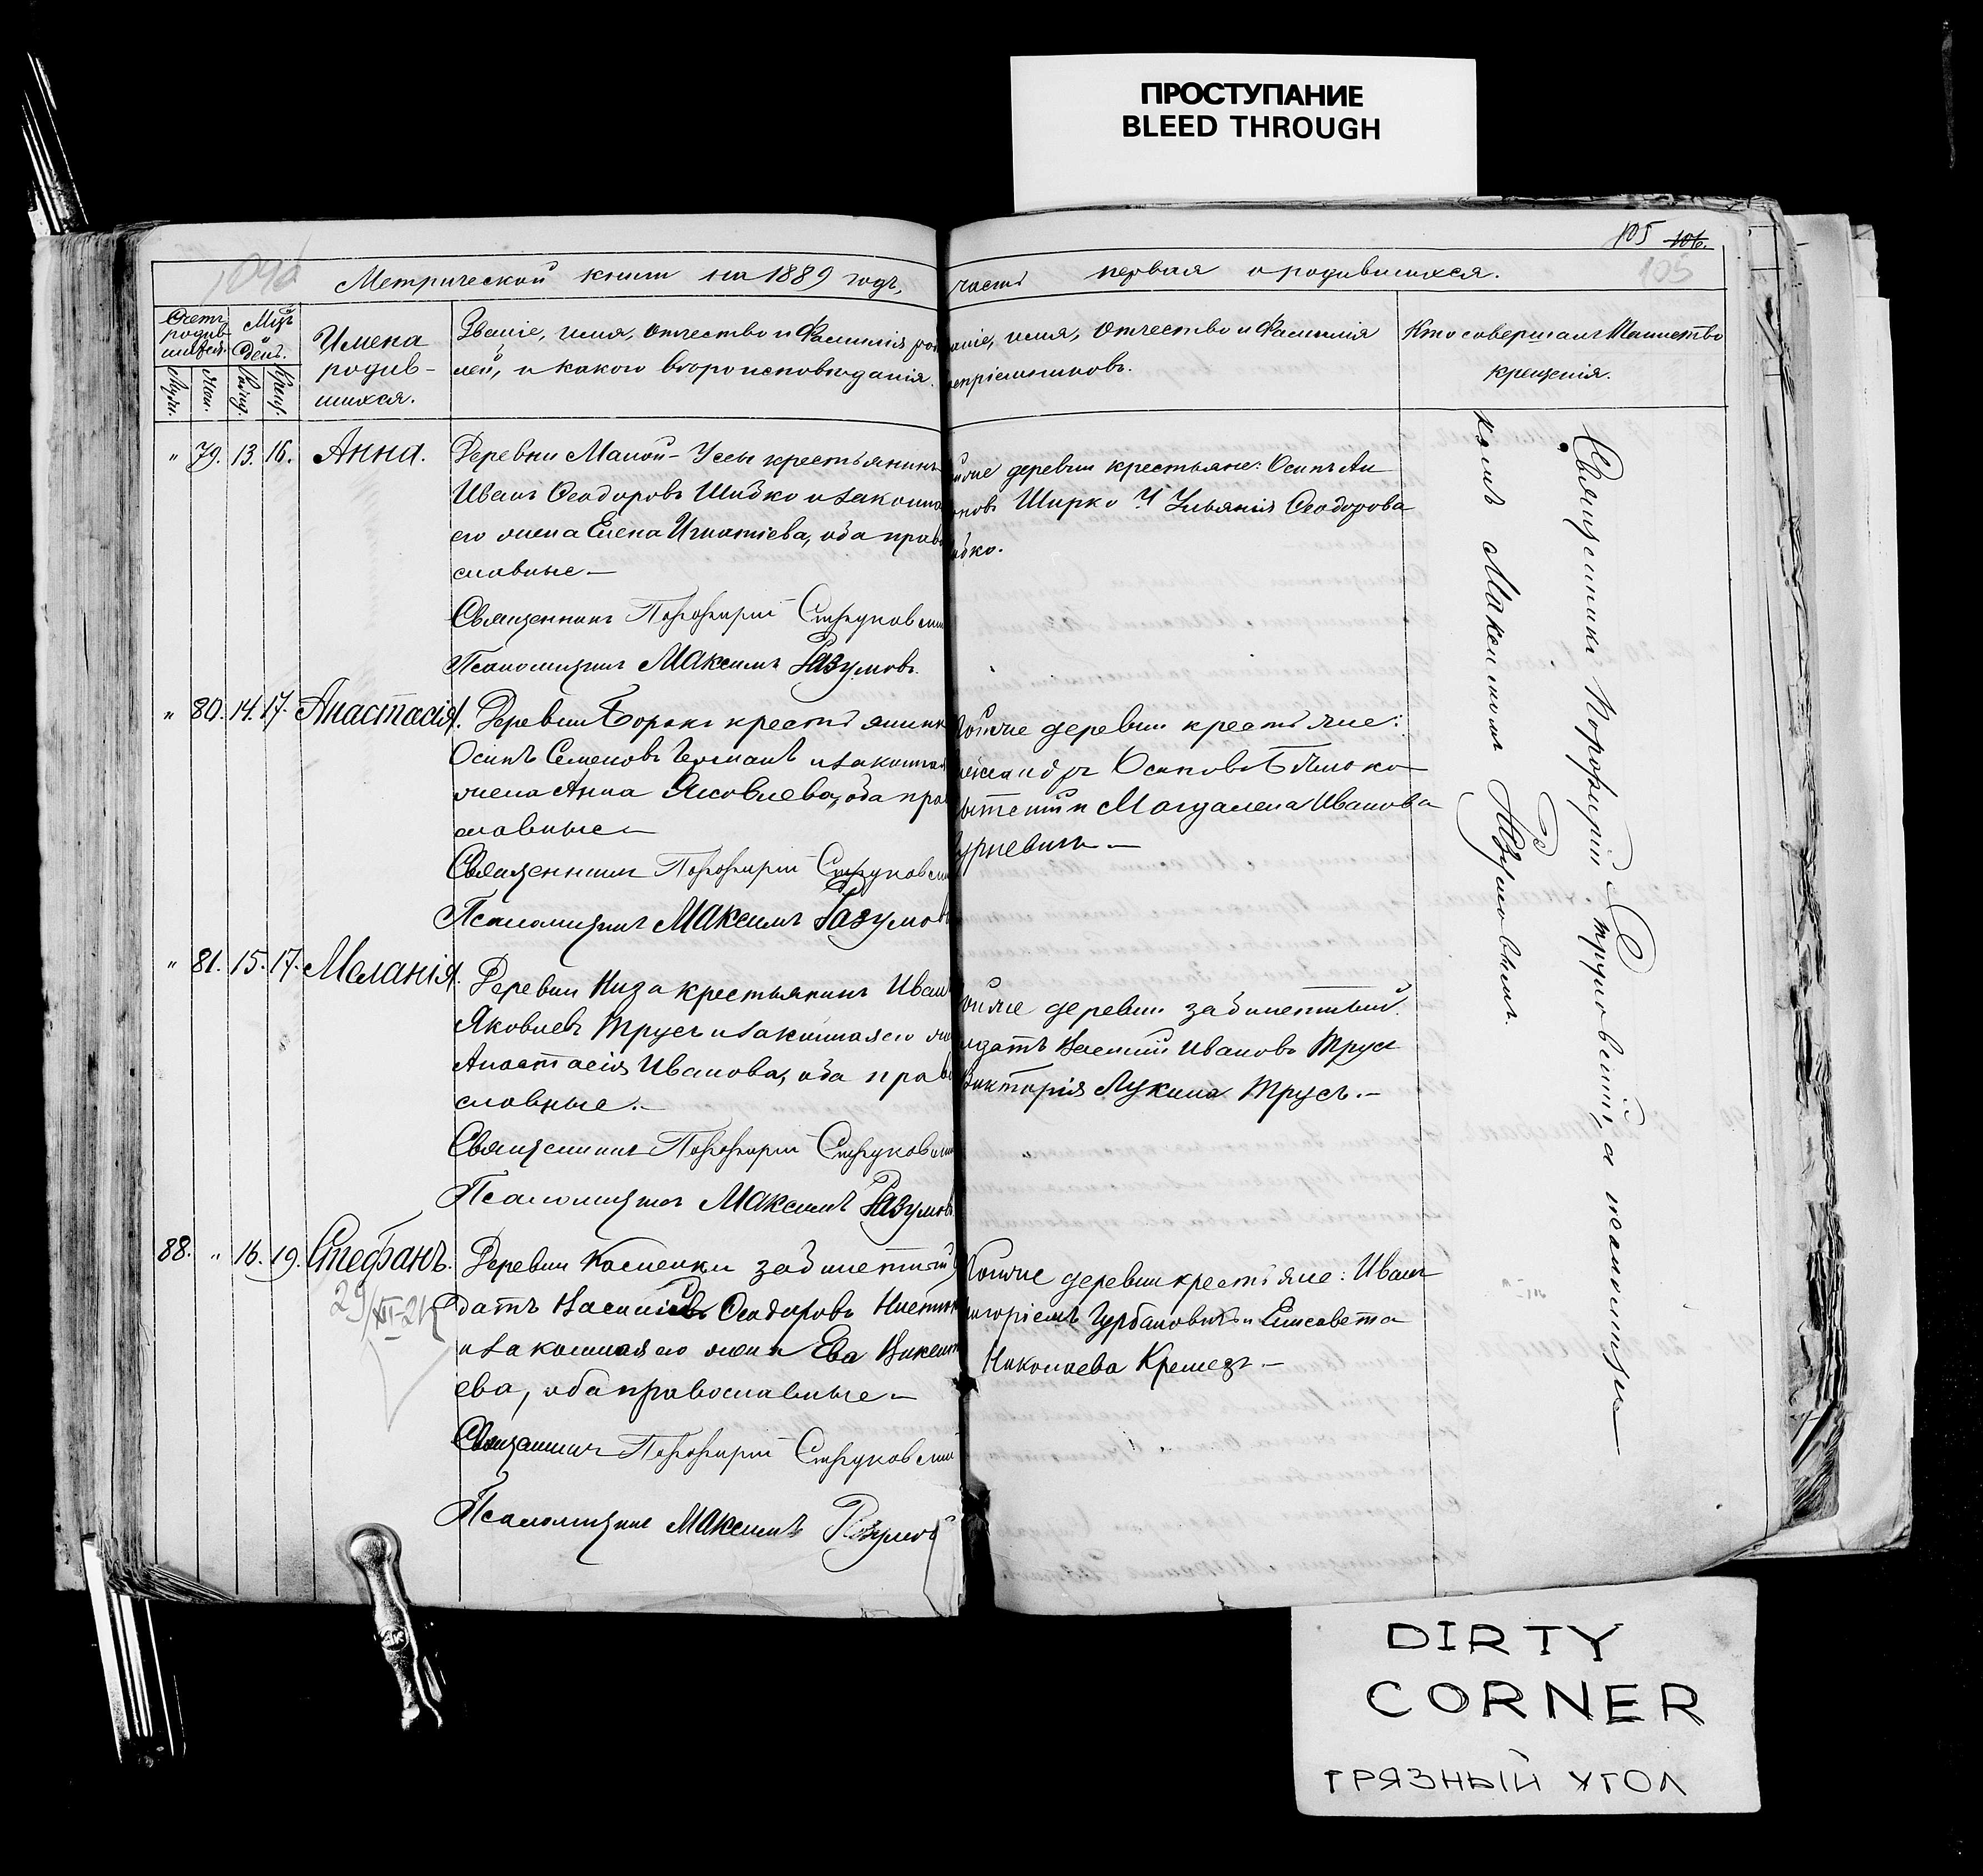 ПРОСТУПАНИЕ
BLEED THROUGH
105 106.
105
Метрической книги на 1889 годъ,
часть первая о родившихся.
Счетъ родив-шихся.
Муж. Жен.
Мцъ и День.
Рожд. Крещ.
Имена
родив-
шихся.
Званіе, имя, отчество и Фамилія ро
лей, и какого вероисповѣданія.
аніе, имя, отчество и Фамилія
епріемниковъ.
Кто совершалъ Таинство
крещенія.
" 79. 13. 16. Анна.
Деревни Малой-Уссы крестьянинъ
Иванъ Ѳеодоровъ Шидко и законна
его жена Елена Игнатіева, оба прав
славные.—
Священникъ Порфирій Струковскі
Псаломщикъ Максимъ Разумовъ.
деревни крестьяне: Осипъ Ан
оновъ Ширко и Ульянія Ѳеодорова
дко.
" 80. 14. 17. Анастасія.
Деревни Борокъ крестьянинъ
Осипъ Семеновъ и законная
жена Анна Яковлева, оба пра
славные—
Священникъ Порфирій Струковскі
Псаломщикъ Максимъ Разумов
той же деревни крестьяне:
Осиповъ Бѣлоко
ытскій и Магдалена Иванова
урневичъ—
" 81. 15. 17. Меланія.
Деревни Низа крестьянинъ Иван
Яковлевъ Трусъ и законная его же
Анастасія Иванова, оба прав
славные.—
Священникъ Порфирій Струковскі
Псаломщикъ Максимъ Разумовъ
ой же деревни забилетный
лдатъ Василій Ивановъ Трус
Викторія Лукина Трусъ.—
88. " 16. 19. Стефанъ.
29/XII-21
Деревни Каменки забилетный
датъ Ѳеодоровъ
и законная его жена Ева Викент
ева, оба православные—
Священникъ Порфирій Струковскій
Псаломщикъ Максимъ Разумовъ
той же деревни крестьяне: Иванъ
Урбановичъ и Елисавета
Николаева Кремезъ—
Священникъ Порфирій Струковскій, а псаломщи
комъ Максимомъ Разумовымъ.
DIRTY
CORNER
ГРЯЗНЫЙ УГОЛ